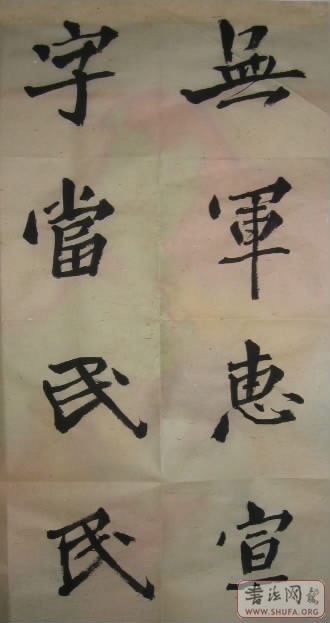 無軍惠宣
字當民民
書法网
WWW.SHUFA.ORG